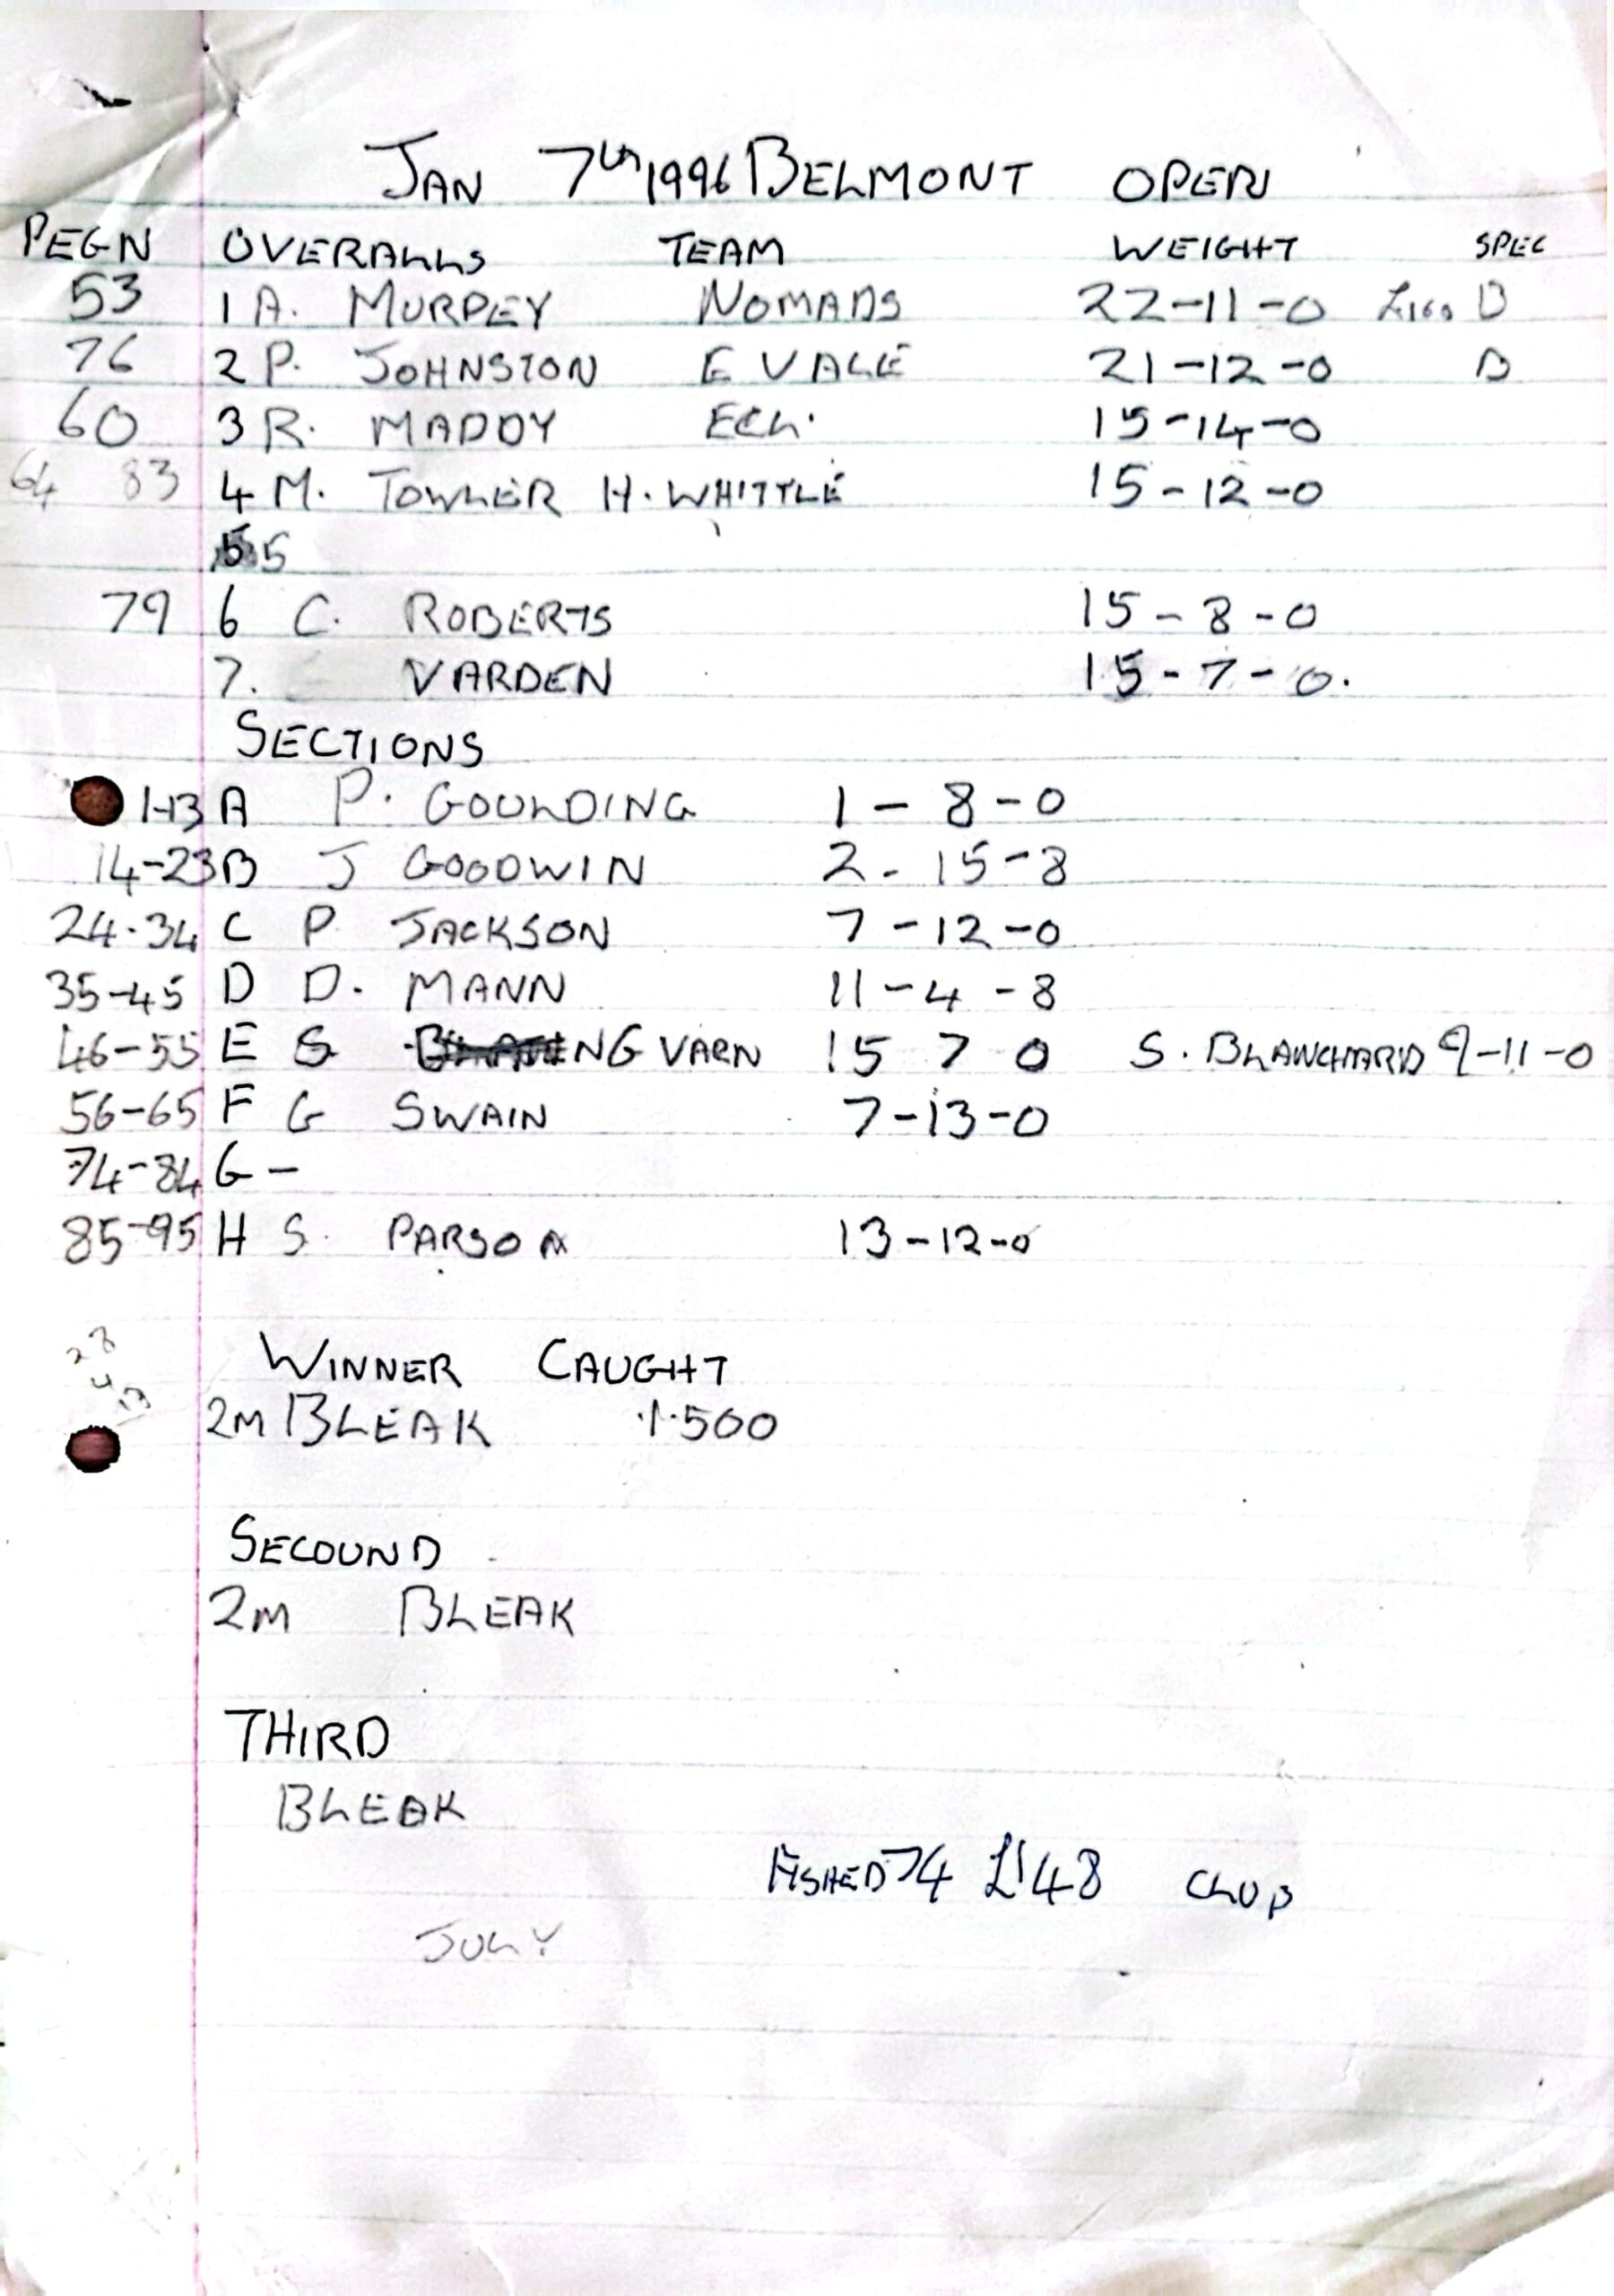 JAN 7th 1996 BELMONT OPEN
PEGN OVERALLS TEAM WEIGHT SPEC
53 1 A. MURPEY NOMADS 22-11-0 £160 B
76 2 P. JOHNSTON E VALE 21-12-0 B
60 3 R. MADDY ECL. 15-14-0
64 83 4 M. TOWLER H. WHITTLE 15-12-0
5
79 6 C. ROBERTS 15-8-0
7. VARDEN 15-7-0.
SECTIONS
1-13 A P. GOULDING 1-8-0
14-23 B J GOODWIN 2-15-8
24-34 C P JACKSON 7-12-0
35-45 D D. MANN 11-4-8
46-55 E G VARN 15 7 0 S. BLANCHARD 9-11-0
56-65 F G SWAIN 7-13-0
74-84 G -
85-95 H S. PARSON 13-12-0
28
4
13
WINNER CAUGHT
2M BLEAK 1.500
SECOUND
2M BLEAK
THIRD
BLEAK
FISHED 74 £148 CLUB
JULY